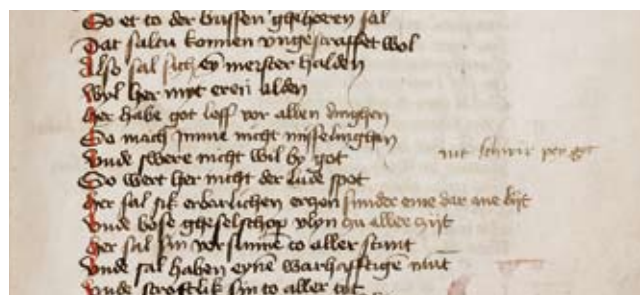 So et to der bussen ghehoren sal
Dat saltu konnen vngestraffet wol
Also sal sich eyn merster halden
Wyl her myt eren alden
Her habe got leff vor allen dinghen
So mach ymme nicht misselinghen
Vnde swere nicht vil by got
nit schwir per got
So wert her nicht der lude spot
Her sal sik erbarlichen erzen sunder eme dar ane bijt
Vnde bose gheselschop vlyn zu aller zijt
Her sal sin vorsunnen to aller stunt
Vnde sal haben eynen warhafftigen munt
Vnde stroftlik sin to aller tot